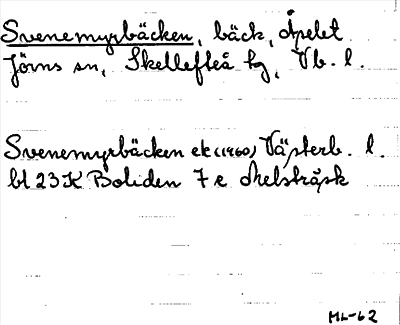 Svenemyrbäcken, bäck, Åselet
Jörns sn, Skellefteå kg, Vb. l.
Svenemyrbäcken ek (1960) Västerb. l.
bl 23 K Boliden 7 e Melsträsk
ML-62